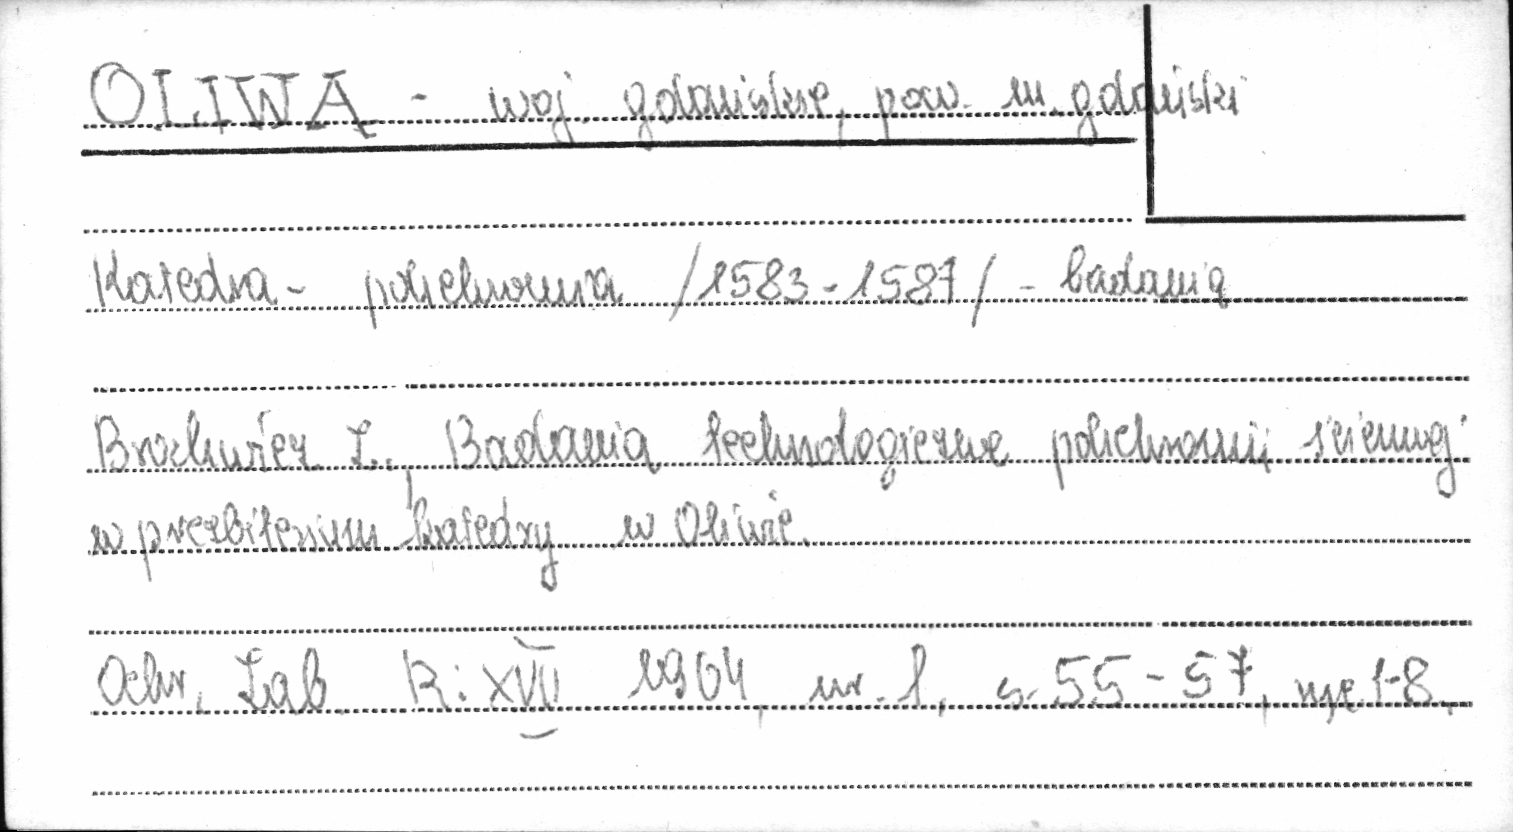 OLIWA - woj. gdańskie, pow. m. gdański
Katedra - polichromia /1583-1587/ - badania
Brochwicz Z., Badania technologiczne polichromii ściennej
w prezbiterium katedry w Oliwie.
Ochr. Zab. R: XVII 1964, nr. 1, s. 55-57, ryc. 1-8.